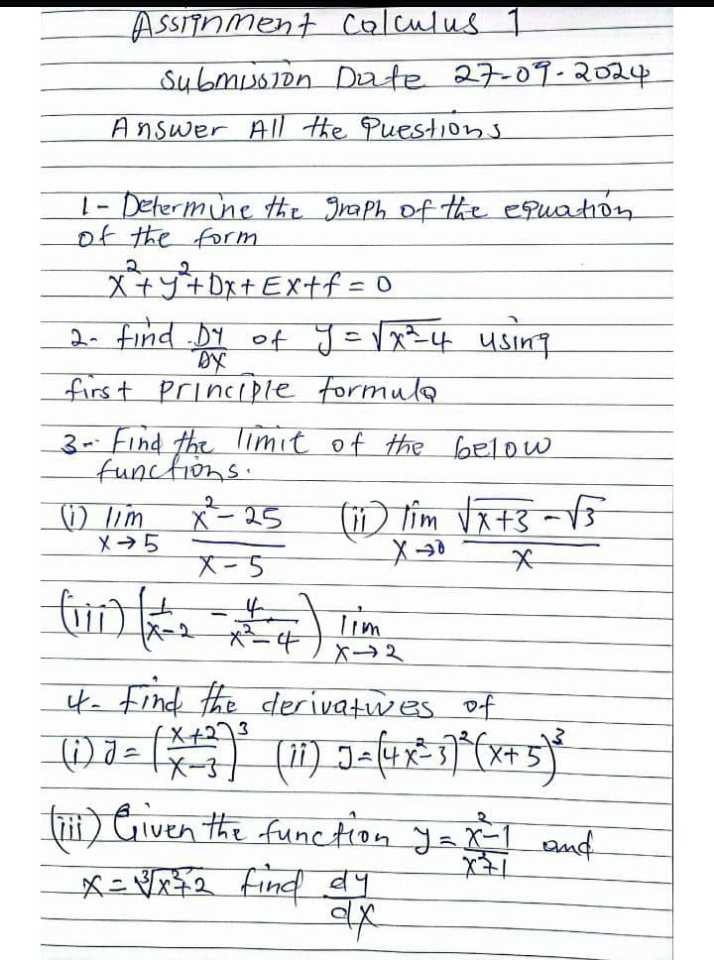 Assignment Calculus 1
Submission Date 27-09-2024
Answer All the Questions
1- Determine the graph of the equation
of the form
x²+y²+Dx+Ex+f=0
2- find Dy/Dx of y=√x²-4 using
first principle formula
3- Find the limit of the below
functions.
(i) lim x→5 x²-25/x-5 (ii) lim x→0 √x+3-√3/x
(iii) (1/x-2 - 4/x²-4) lim x→2
4- find the derivatives of
(i) y=(x+2/x-3)³ (ii) y=(4x²-3)²(x+5)³
(iii) Given the function y=x²-1/x²+1 and
x=∛x²+2 find dy/dx